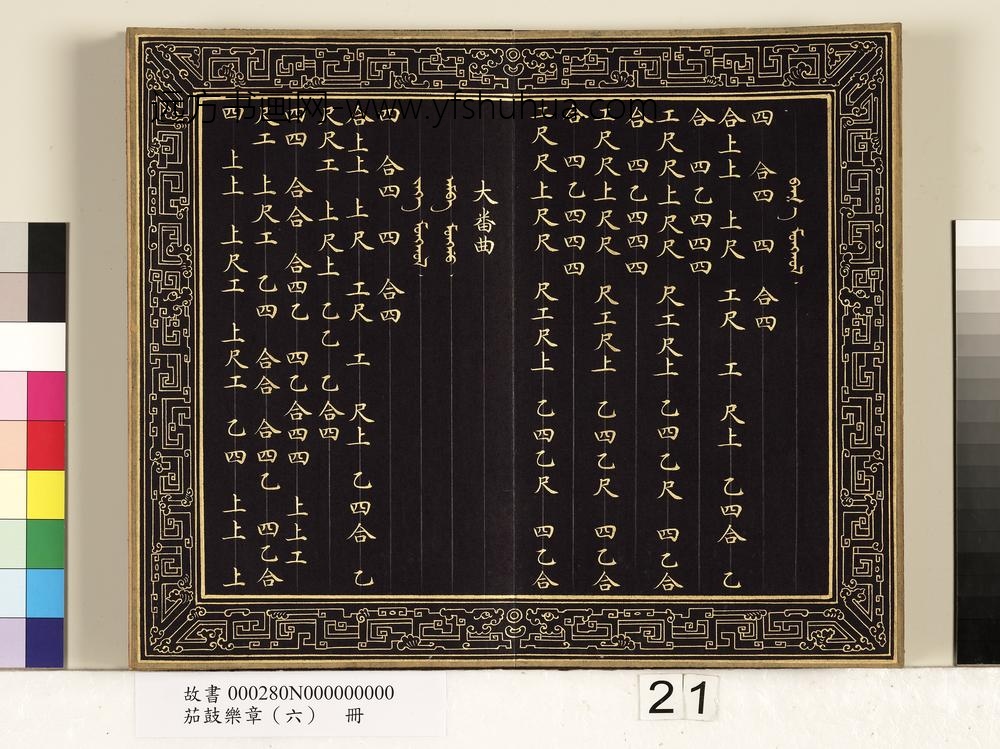 四　合四　四　合四
合上上　上尺　工尺　工　尺上　乙四合　乙
合　四乙四四四
工尺尺上尺尺　尺工尺上　乙四乙尺　四乙合
合　四乙四四四
工尺尺上尺尺　尺工尺上　乙四乙尺　四乙合
合　四乙四四四
工尺尺上尺尺　尺工尺上　乙四乙尺　四乙合
大番曲
四　合四　四　合四
合上上　上尺　工尺　工　尺上　乙四合　乙
尺尺工　上尺上　乙乙　乙合四
四四　合合　合四乙　四乙合四四　上上工
尺工　上尺工　乙四　合合　合四乙　四乙合
四　上上　上尺工　上尺工　乙四　上上　上
方书画网-www.yfshuhua.com
故書 000280N000000000
茄鼓樂章（六）　冊
21